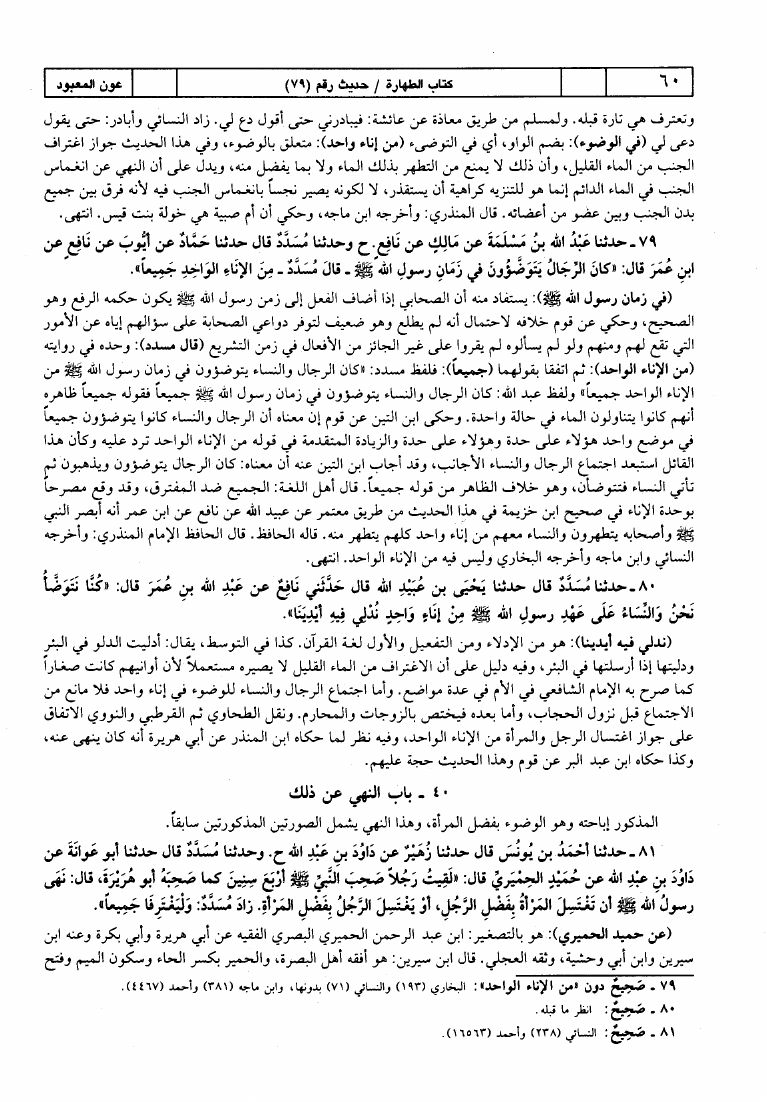 ٦٠ كتاب الطهارة / حديث رقم (٧٩) عون المعبود
وتعترف هي تارة قبله. ولمسلم من طريق معاذة عن عائشة: فيبادرني حتى أقول دع لي. زاد النسائي وأبادر: حتى يقول
دعى لي (في الوضوء): بضم الواو، أي في التوضىء (من إناء واحد): متعلق بالوضوء، وفي هذا الحديث جواز اغتراف
الجنب من الماء القليل، وأن ذلك لا يمنع من التطهر بذلك الماء ولا بما يفضل منه، ويدل على أن النهي عن انغماس
الجنب في الماء الدائم إنما هو للتنزيه كراهية أن يستقذر، لا لكونه يصير نجساً بانغماس الجنب فيه لأنه فرق بين جميع
بدن الجنب وبين عضو من أعضائه. قال المنذري: وأخرجه ابن ماجه، وحكي أن أم صبية هي خولة بنت قيس. انتهى.
٧٩ ـ حدثنا عَبْدُ الله بنُ مَسْلَمَةَ عن مَالِكٍ عن نَافِعٍ. ح وحدثنا مُسَدَّدٌ قال حدثنا حَمَّادٌ عن أيُّوبَ عن نَافِعٍ عن
ابنِ عُمَرَ قال: «كانَ الرِّجَالُ يَتَوَضَّؤُونَ في زَمَانِ رسولِ الله ﷺ ـ قالَ مُسَدَّدٌ ـ مِنَ الإنَاءِ الْوَاحِدِ جَمِيعاً».
(في زمان رسول الله ﷺ): يستفاد منه أن الصحابي إذا أضاف الفعل إلى زمن رسول الله ﷺ يكون حكمه الرفع وهو
الصحيح، وحكي عن قوم خلافه لاحتمال أنه لم يطلع وهو ضعيف لتوفر دواعي الصحابة على سؤالهم إياه عن الأمور
التي تقع لهم ومنهم ولو لم يسألوه لم يقروا على غير الجائز من الأفعال في زمن التشريع (قال مسدد): وحده في روايته
(من الإناء الواحد): ثم اتفقا بقولهما (جميعاً): فلفظ مسدد: «كان الرجال والنساء يتوضؤون في زمان رسول الله ﷺ من
الإناء الواحد جميعاً» ولفظ عبد الله: كان الرجال والنساء يتوضؤون في زمان رسول الله ﷺ جميعاً فقوله جميعاً ظاهره
أنهم كانوا يتناولون الماء في حالة واحدة. وحكى ابن التين عن قوم إن معناه أن الرجال والنساء كانوا يتوضؤون جميعاً
في موضع واحد هؤلاء على حدة وهؤلاء على حدة والزيادة المتقدمة في قوله من الإناء الواحد ترد عليه وكأن هذا
القائل استبعد اجتماع الرجال والنساء الأجانب، وقد أجاب ابن التين عنه أن معناه: كان الرجال يتوضؤون ويذهبون ثم
تأتي النساء فتتوضأن، وهو خلاف الظاهر من قوله جميعاً. قال أهل اللغة: الجميع ضد المفترق، وقد وقع مصرحاً
بوحدة الإناء في صحيح ابن خزيمة في هذا الحديث من طريق معتمر عن عبيد الله عن نافع عن ابن عمر أنه أبصر النبي
ﷺ وأصحابه يتطهرون والنساء معهم من إناء واحد كلهم يتطهر منه. قاله الحافظ. قال الحافظ الإمام المنذري: وأخرجه
النسائي وابن ماجه وأخرجه البخاري وليس فيه من الإناء الواحد. انتهى.
٨٠ ـ حدثنا مُسَدَّدٌ قال حدثنا يَحْيَى بن عُبَيْدِ الله قال حَدَّثَني نَافِعٌ عن عَبْدِ الله بنِ عُمَرَ قال: «كُنَّا نَتَوَضَّأُ
نَحْنُ وَالنِّسَاءُ عَلَى عَهْدِ رسولِ الله ﷺ مِنْ إنَاءٍ وَاحِدٍ نُدْلِي فِيهِ أيْدِيَنَا».
(ندلي فيه أيدينا): هو من الإدلاء ومن التفعيل والأول لغة القرآن. كذا في التوسط، يقال: أدليت الدلو في البئر
ودليتها إذا أرسلتها في البئر، وفيه دليل على أن الاغتراف من الماء القليل لا يصيره مستعملاً لأن أوانيهم كانت صغاراً
كما صرح به الإمام الشافعي في الأم في عدة مواضع. وأما اجتماع الرجال والنساء للوضوء في إناء واحد فلا مانع من
الاجتماع قبل نزول الحجاب، وأما بعده فيختص بالزوجات والمحارم. ونقل الطحاوي ثم القرطبي والنووي الاتفاق
على جواز اغتسال الرجل والمرأة من الإناء الواحد، وفيه نظر لما حكاه ابن المنذر عن أبي هريرة أنه كان ينهى عنه،
وكذا حكاه ابن عبد البر عن قوم وهذا الحديث حجة عليهم.
٤٠ ـ باب النهي عن ذلك
المذكور إباحته وهو الوضوء بفضل المرأة، وهذا النهي يشمل الصورتين المذكورتين سابقاً.
٨١ ـ حدثنا أحْمَدُ بن يُونُسَ قال حدثنا زُهَيْرٌ عن دَاوُدَ بنِ عَبْدِ الله ح. وحدثنا مُسَدَّدٌ قال حدثنا أبو عَوَانَةَ عن
دَاوُدَ بنِ عَبْدِ الله عن حُمَيْدٍ الْحِمْيَرِيِّ قال: «لَقِيتُ رَجُلاً صَحِبَ النَّبيَّ ﷺ أرْبَعَ سِنِينَ كما صَحِبَهُ أبو هُرَيْرَةَ، قال: نَهَى
رسولُ الله ﷺ أن تَغْتَسِلَ المَرْأةُ بِفَضْلِ الرَّجُلِ، أوْ يَغْتَسِلَ الرَّجُلُ بِفَضْلِ المَرْأةِ. زادَ مُسَدَّدٌ: وَلْيَغْتَرِفَا جَمِيعاً».
(عن حميد الحميري): هو بالتصغير: ابن عبد الرحمن الحميري البصري الفقيه عن أبي هريرة وأبي بكرة وعنه ابن
سيرين وابن أبي وحشية، وثقه العجلي. قال ابن سيرين: هو أفقه أهل البصرة، والحمير بكسر الحاء وسكون الميم وفتح
٧٩ ـ صَحِيحٌ دون «من الإناء الواحد»: البخاري (١٩٣) والنسائي (٧١) بدونها، وابن ماجه (٣٨١) وأحمد (٤٤٦٧).
٨٠ ـ صَحِيحٌ: انظر ما قبله.
٨١ ـ صَحِيحٌ: النسائي (٢٣٨) وأحمد (١٦٥٦٣).